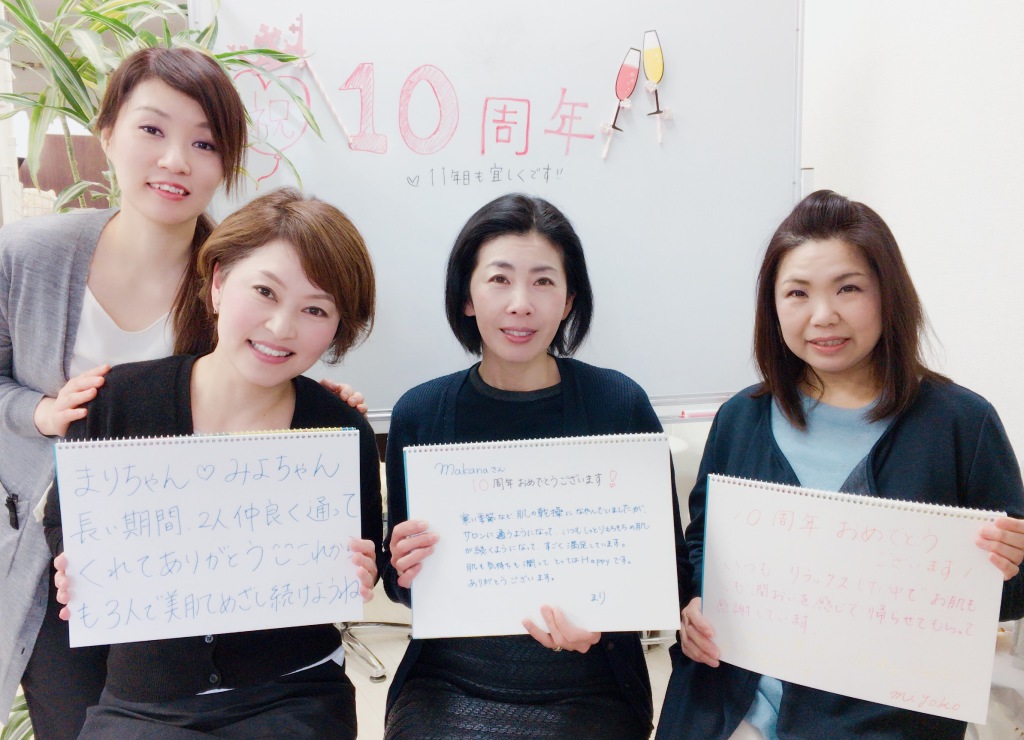 祝
10周年
♡11年目も宜しくです!!
まりちゃん♡みよちゃん
長い期間、2人仲良く通って
くれてありがとう
も3人で美肌めざし続けようね
makanaさん
10周年おめでとうございます!
寒い季節など肌の乾燥になやんでいましたが、
サロンに通うようになって いつもしっとりもちもちの肌
が続くようになって すごく満足しています。
肌も気持ちも潤って とってもHappyです。
ありがとうございます。
まり
10周年 おめでとう
ございます!
いつも リラックス お肌も
も潤おいを感じて 帰らせてもらって
感謝しています
miyoko